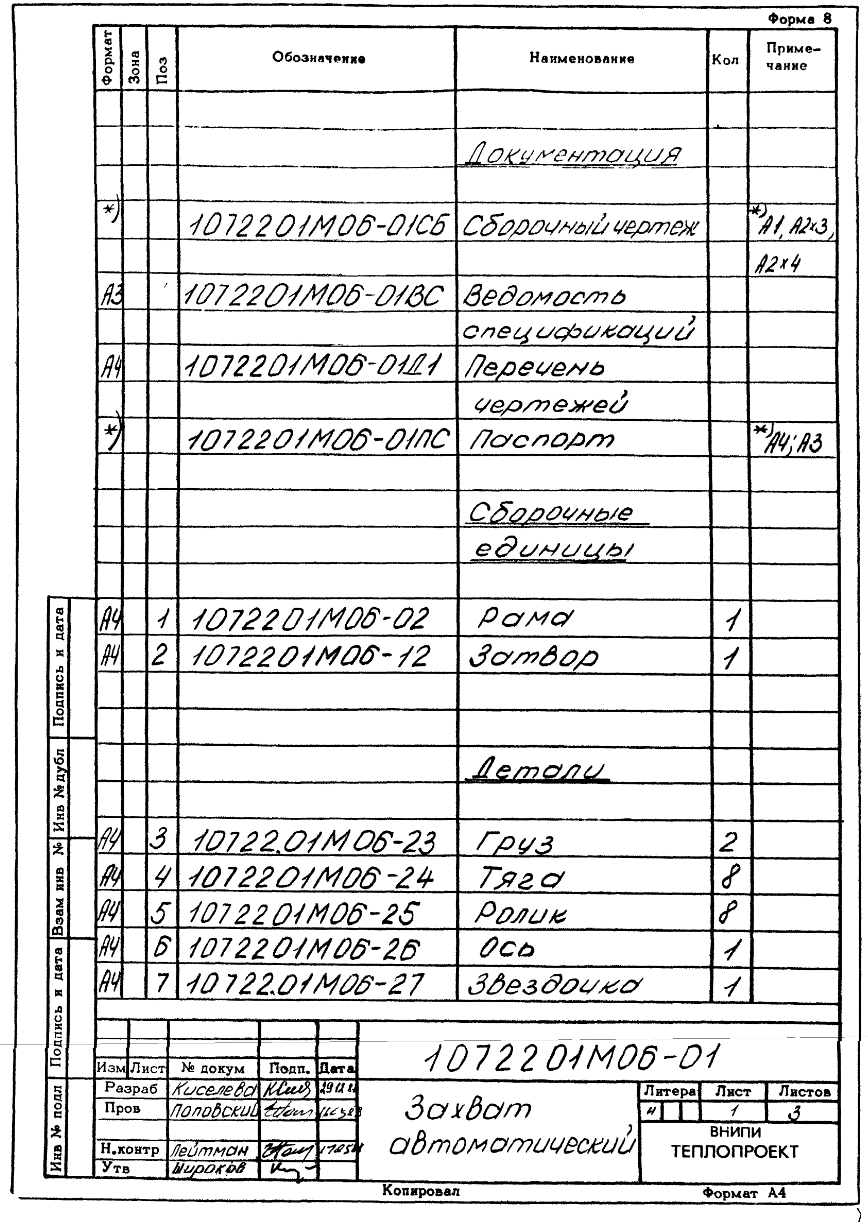 Форма 8
Формат Зона Поз Обозначение Наименование Кол Приме-
чание
Документация
*) 1072201М06-01СБ Сборочный чертеж *) А1, А2х3,
А2х4
А3 1072201М06-01ВС Ведомость
спецификаций
А4 1072201М06-01Д1 Перечень
чертежей
*) 1072201М06-01ПС Паспорт *) А4; А3
Сборочные
единицы
А4 1 1072201М06-02 Рама 1
А4 2 1072201М06-12 Затвор 1
Детали
А4 3 10722.01М06-23 Груз 2
А4 4 1072201М06-24 Тяга 8
А4 5 1072201М06-25 Ролик 8
А4 6 1072201М06-26 Ось 1
А4 7 10722.01М06-27 Звездочка 1
Подпись и дата
Инв № дубл
Взам инв №
Подпись и дата
Инв № подл
1072201М06-01
Изм Лист № докум Подп. Дата
Разраб Киселева
Пров Поповский
Н.контр Лейтман
Утв Широков
Захват
автоматический
Литера Лист Листов
И 1 3
ВНИПИ
ТЕПЛОПРОЕКТ
Копировал Формат А4